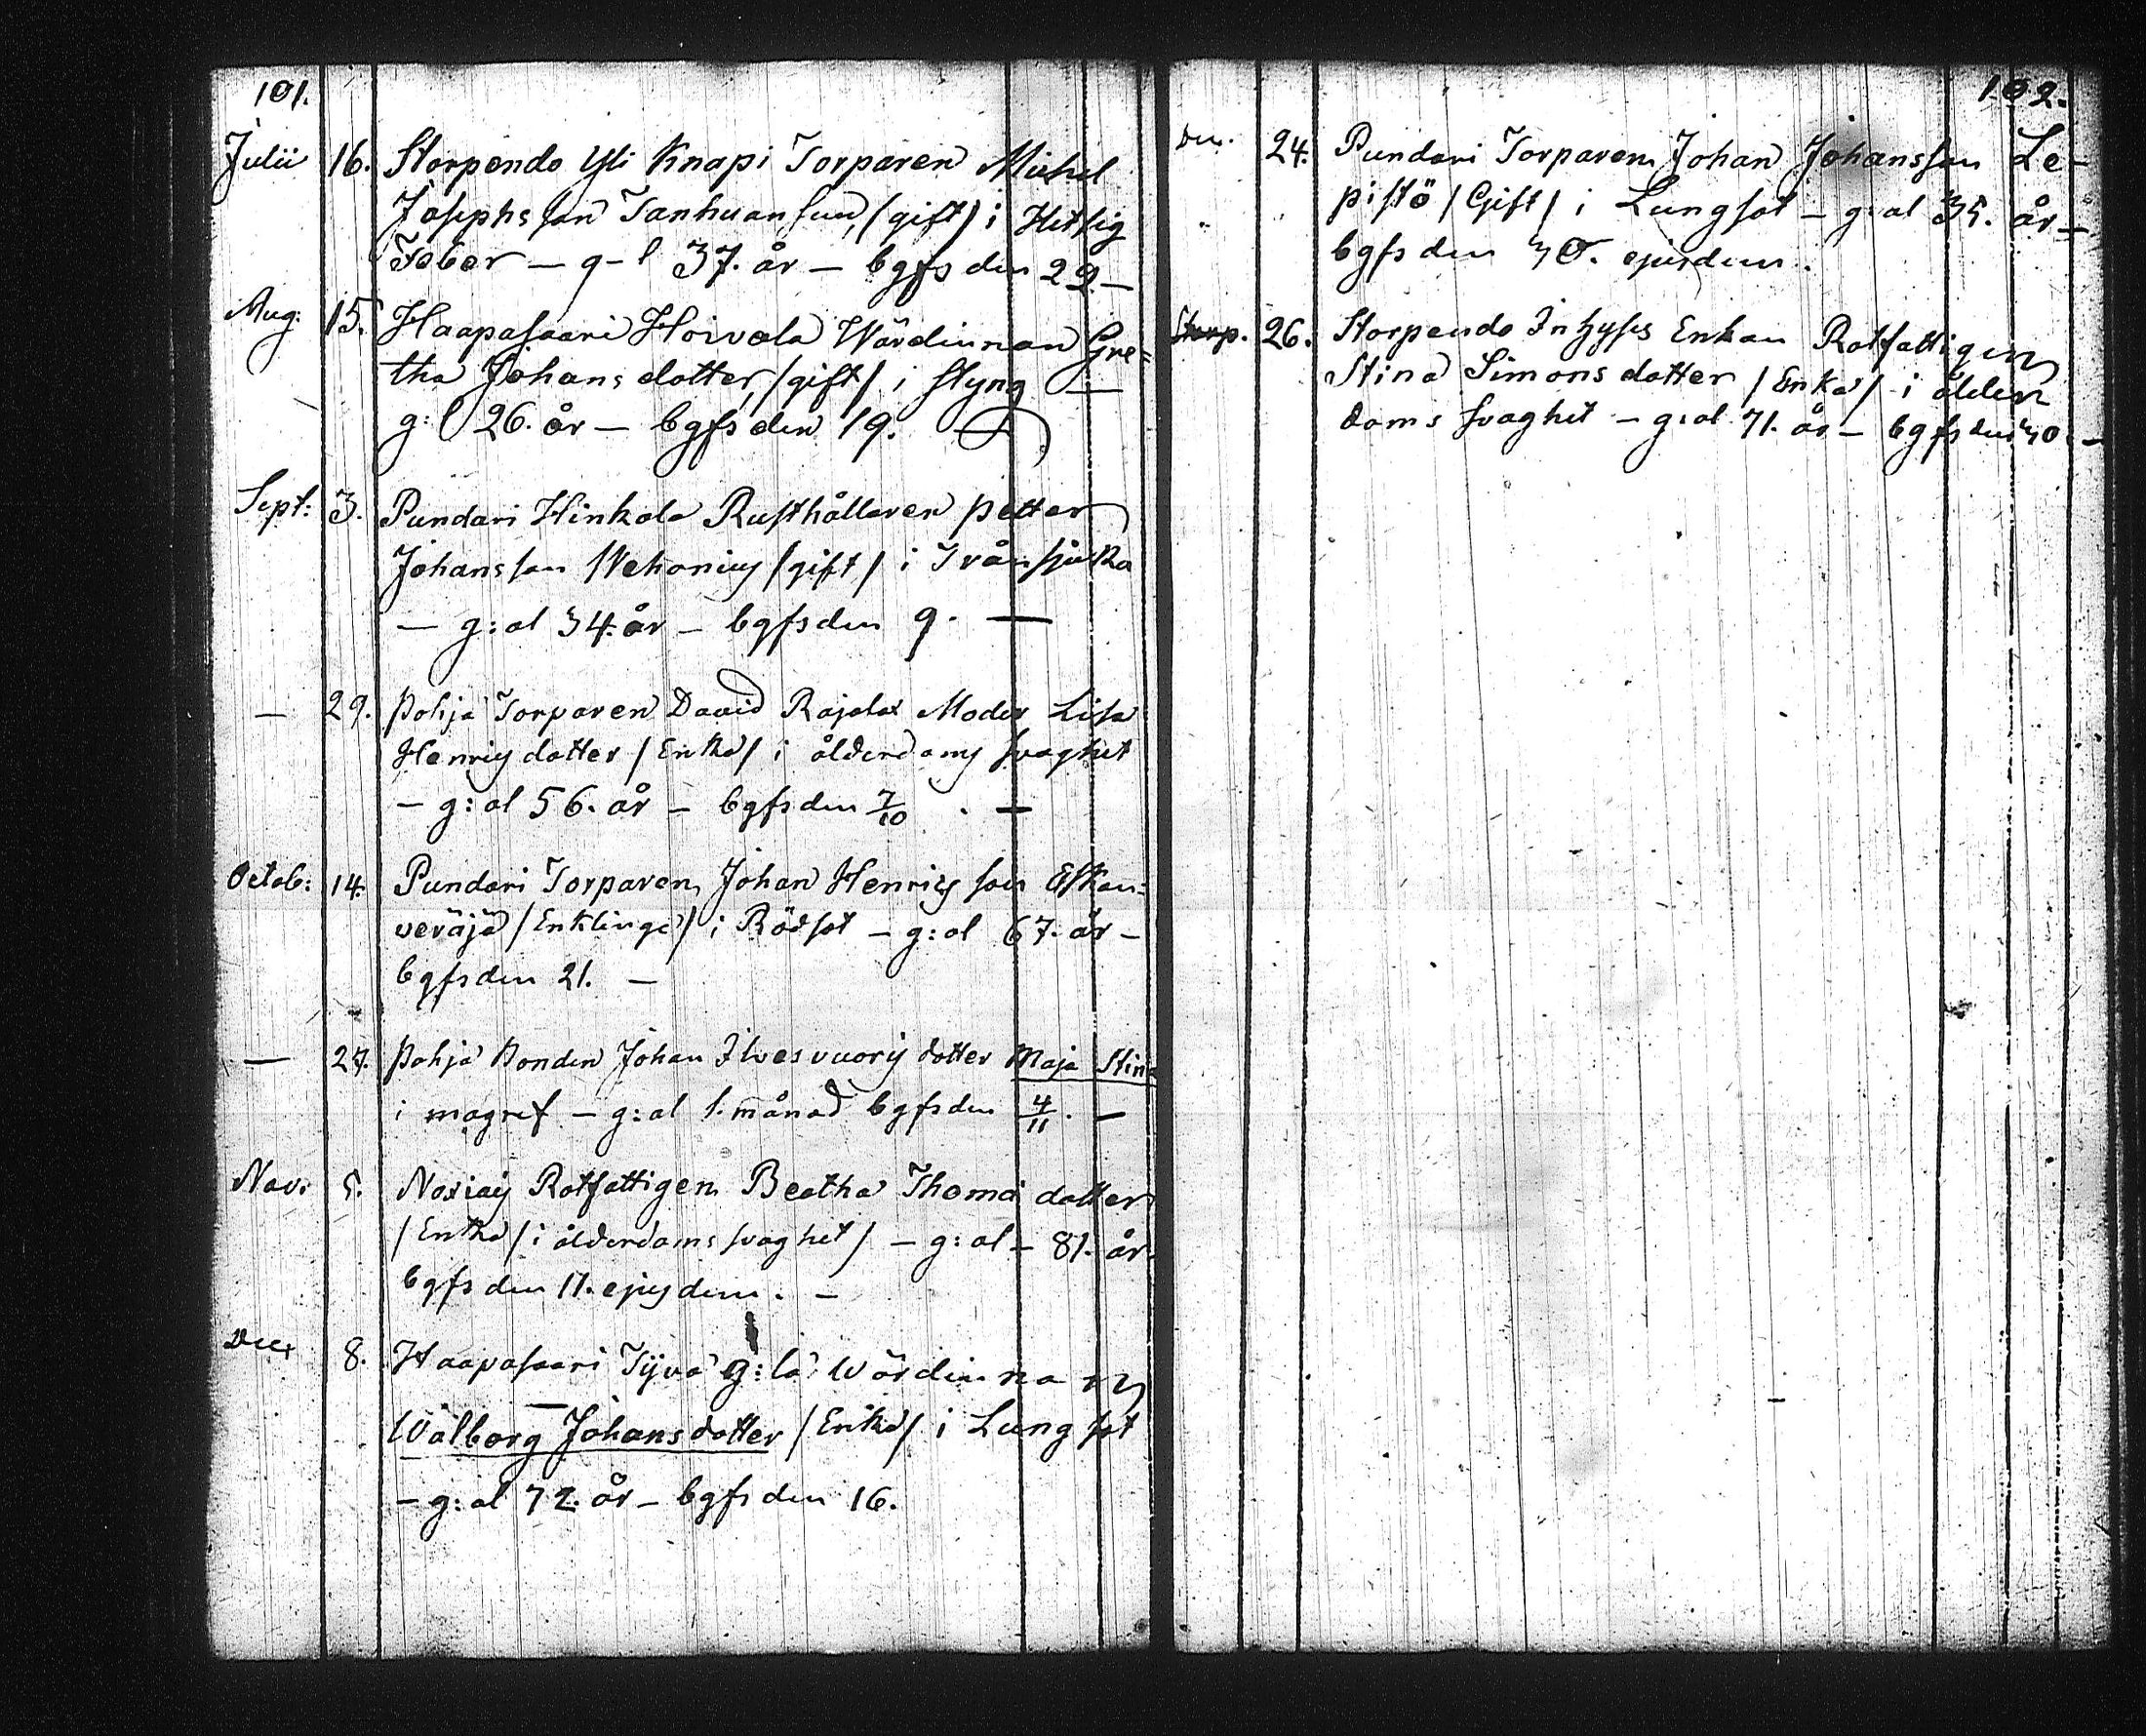 101.
Julii 16. Storpendo Yli Knapi Torparen Michel
Josephsson Tanhuansuu, /gift/ i Hetsig
Feber — g–l 37. år — bgfs den 22. —
Aug: 15. Haapasaari Hoivala Wärdinnan Gre=
tha Johansdotter, /gift/ i styng —
g:l 26. år — bgfs den 19.
Sept: 3. Pundari Hinkala Rusthållaren Petter
Johansson /gift/ i Trånsjuka
— g:al 34. år — bgfs den 9. —
— 29. Pohja Torparen David Rajalas Moder Lisa
Henricsdotter /Enka/ i ålderdoms svaghet
— g:al 56. år — bgfs den 7/10. —
Octob: 14. Pundari Torparen Johan Henricsson Eskan=
veräjä /Enkling/ i Rödsot — g:al 67. år —
bgfs den 21. —
— 27. Pohja Bonden Johan Ilvesvuoris dotter Maja Stina
i magref — g:al 1. månad bgfs den 4/11. —
Nov: 5. Rotfattigen Beatha Thomædotter
/Enka/ i ålderdoms svaghet/ — g:al — 81. år
bgfs den 11. ejusdem. —
Dec: 8. Haapasaari Tyvä g:la Wärdinnan
Walborg Johansdotter /Enka/ i Lungsot
— g:al 72. år — bgfs den 16.
102.
Dec. 24. Pundari Torparen Johan Johansson Le-
pistö /Gift/ i Lungsot — g:al 35. år —
bgfs den 30. ejusdem.
Storp. 26. Storpendo Inhyses Enkan Rotfattigen
Stina Simonsdotter /Enka/ i ålder
doms svaghet — g:al 71. år — bgfs den 30. —